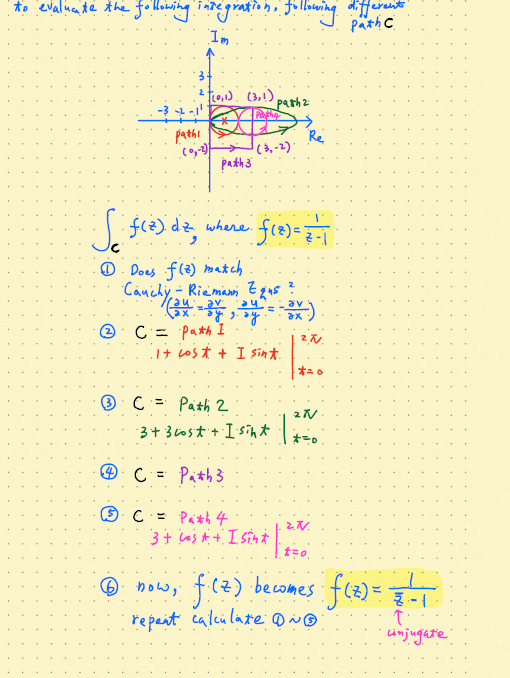 to evaluate the following integration, following different
path C
Im
3
2
1
(0,1) (3,1) path2
path4
-3 -2 -1
Re
path1
(0,-2) (3,-2)
path3
∫_C f(z) dz, where f(z) = 1/(z-1)
① Does f(z) match
Cauchy-Riemann Eqns?
(∂u/∂x = ∂v/∂y, ∂u/∂y = -∂v/∂x)
② C = Path I
1 + cos t + I sin t |_{t=0}^{2π}
③ C = Path 2
3 + 3 cos t + I sin t |_{t=0}^{2π}
④ C = Path 3
⑤ C = Path 4
3 + cos t + I sin t |_{t=0}^{2π}
⑥ now, f(z) becomes f(z) = 1/(z̄-1)
repeat calculate ①~⑤
↑
conjugate